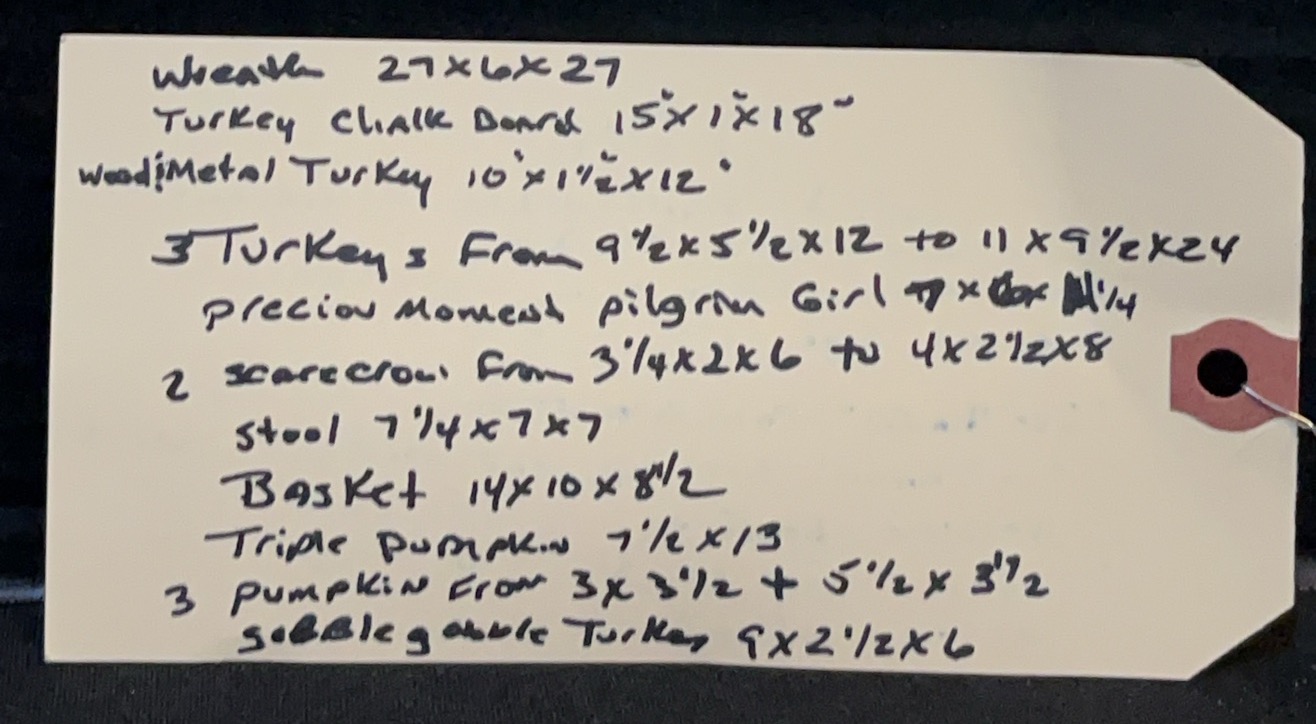 Wreath 27x6x27
Turkey Chalk Board 15"x1"x18"
Wood & Metal Turkey 10"x1 1/2"x12"
3 Turkeys From 9 1/2x5 1/2x12 to 11x9 1/2x24
Preciou Moment pilgrim Girl 7x
2 scarecrow From 3 1/4x2x6 to 4x2 1/2x8
Stool 7 1/4x7x7
Basket 14x10x8 1/2
Triple Pumpkin 7 1/2x13
3 Pumpkin From 3x3 1/2 + 5 1/2x3 1/2
gobble gobble Turkey 9x2 1/2x6